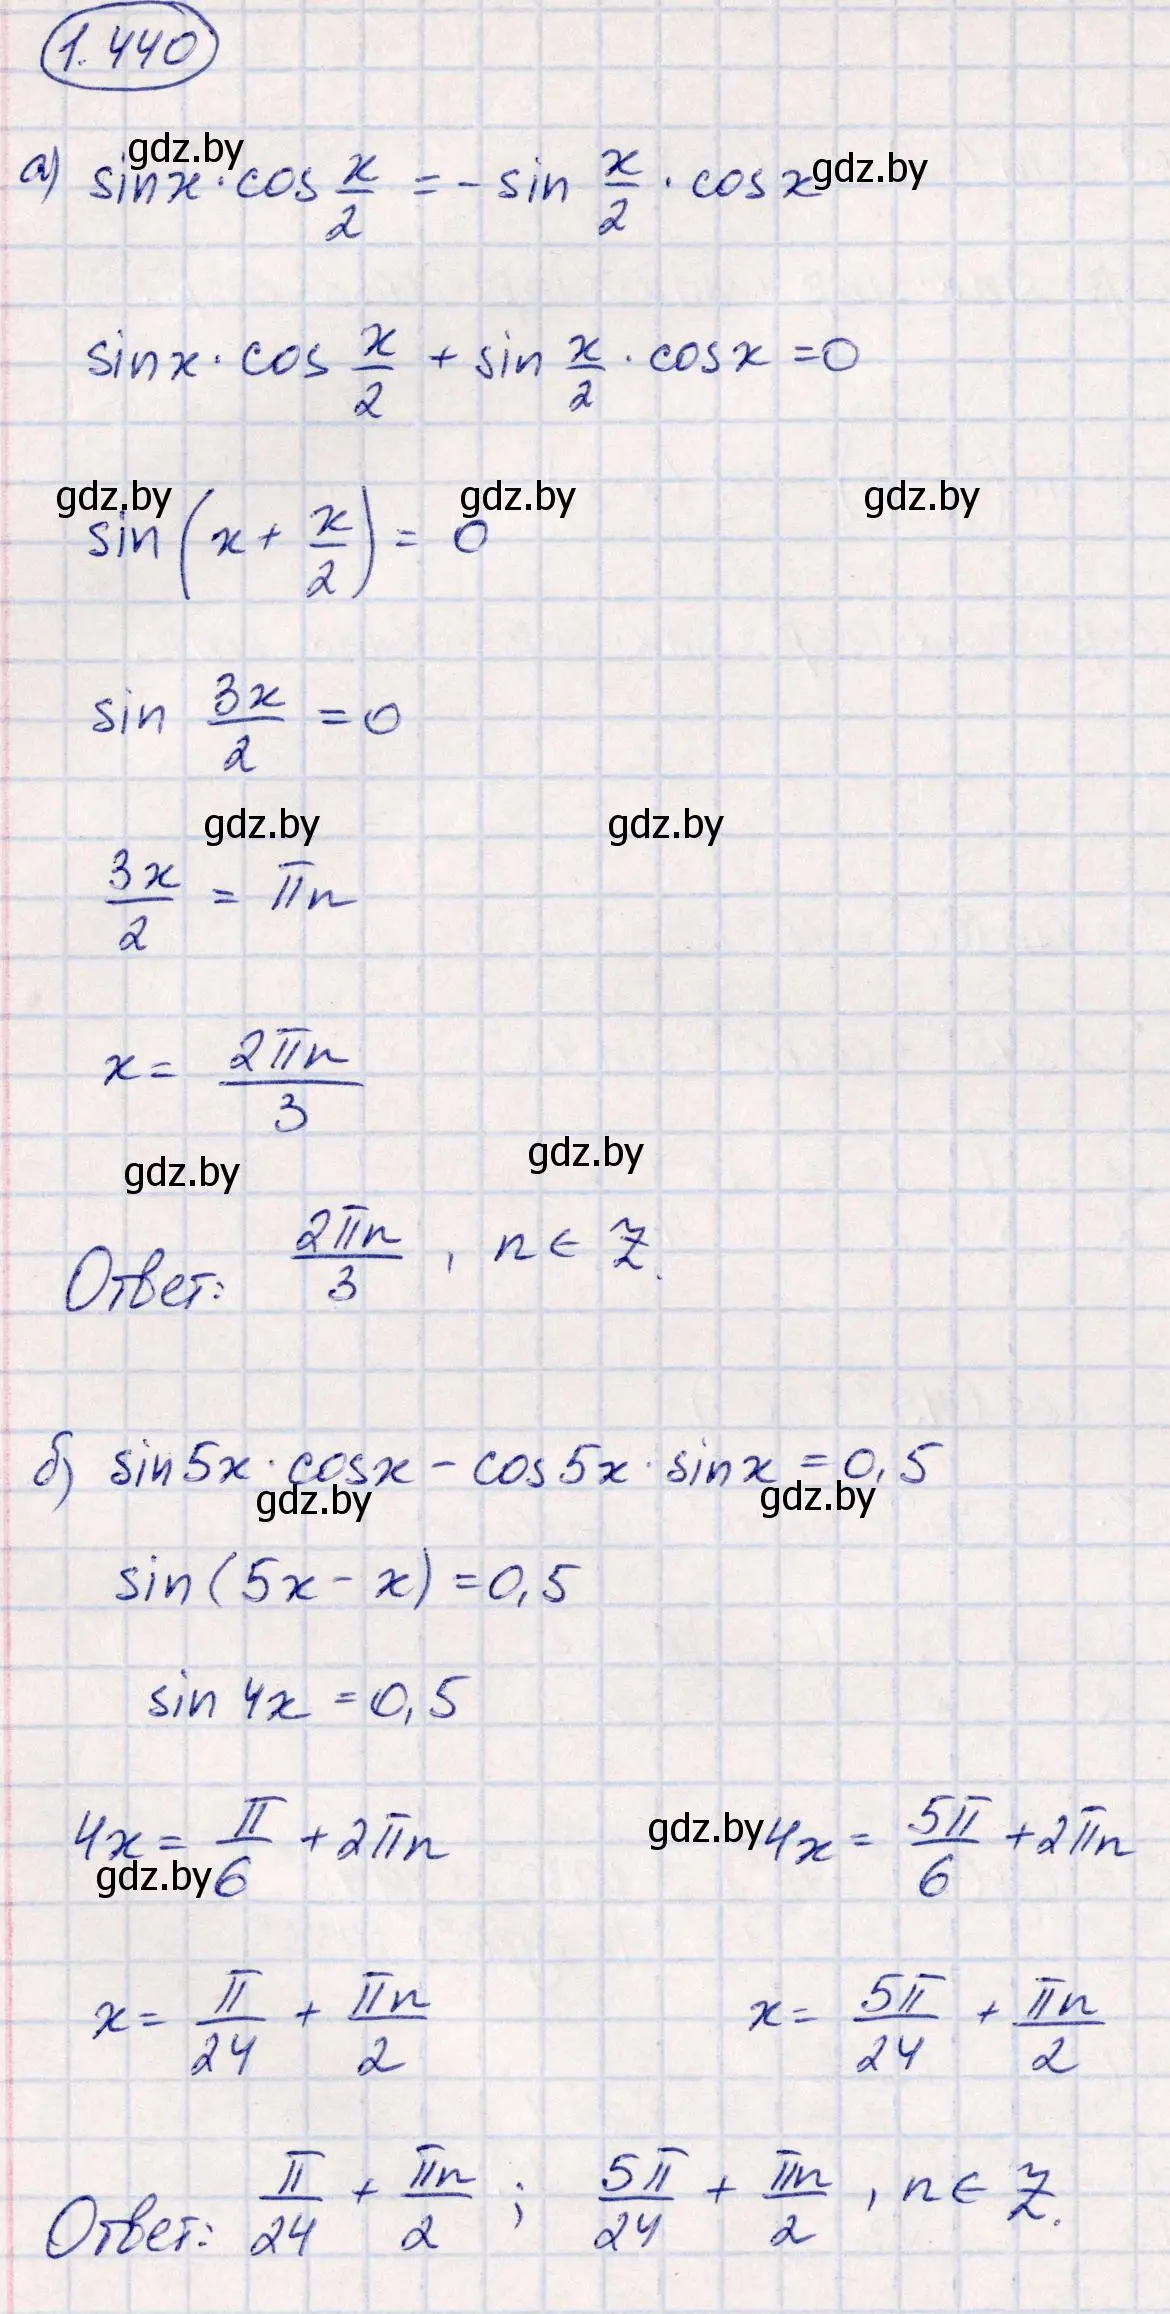 1.440
gdz.by
gdz.by
а) sinx · cos x/2 = - sin x/2 · cosx
sinx · cos x/2 + sin x/2 · cosx = 0
gdz.by gdz.by gdz.by
sin(x + x/2) = 0
sin 3x/2 = 0
gdz.by gdz.by
3x/2 = πn
x = 2πn/3
gdz.by gdz.by
Ответ: 2πn/3, n ∈ Z.
б) sin5x · cosx - cos5x · sinx = 0,5
gdz.by gdz.by
sin(5x - x) = 0,5
sin 4x = 0,5
4x = π/6 + 2πn gdz.by 4x = 5π/6 + 2πn
gdz.by
x = π/24 + πn/2 x = 5π/24 + πn/2
Ответ: π/24 + πn/2 ; 5π/24 + πn/2, n ∈ Z.